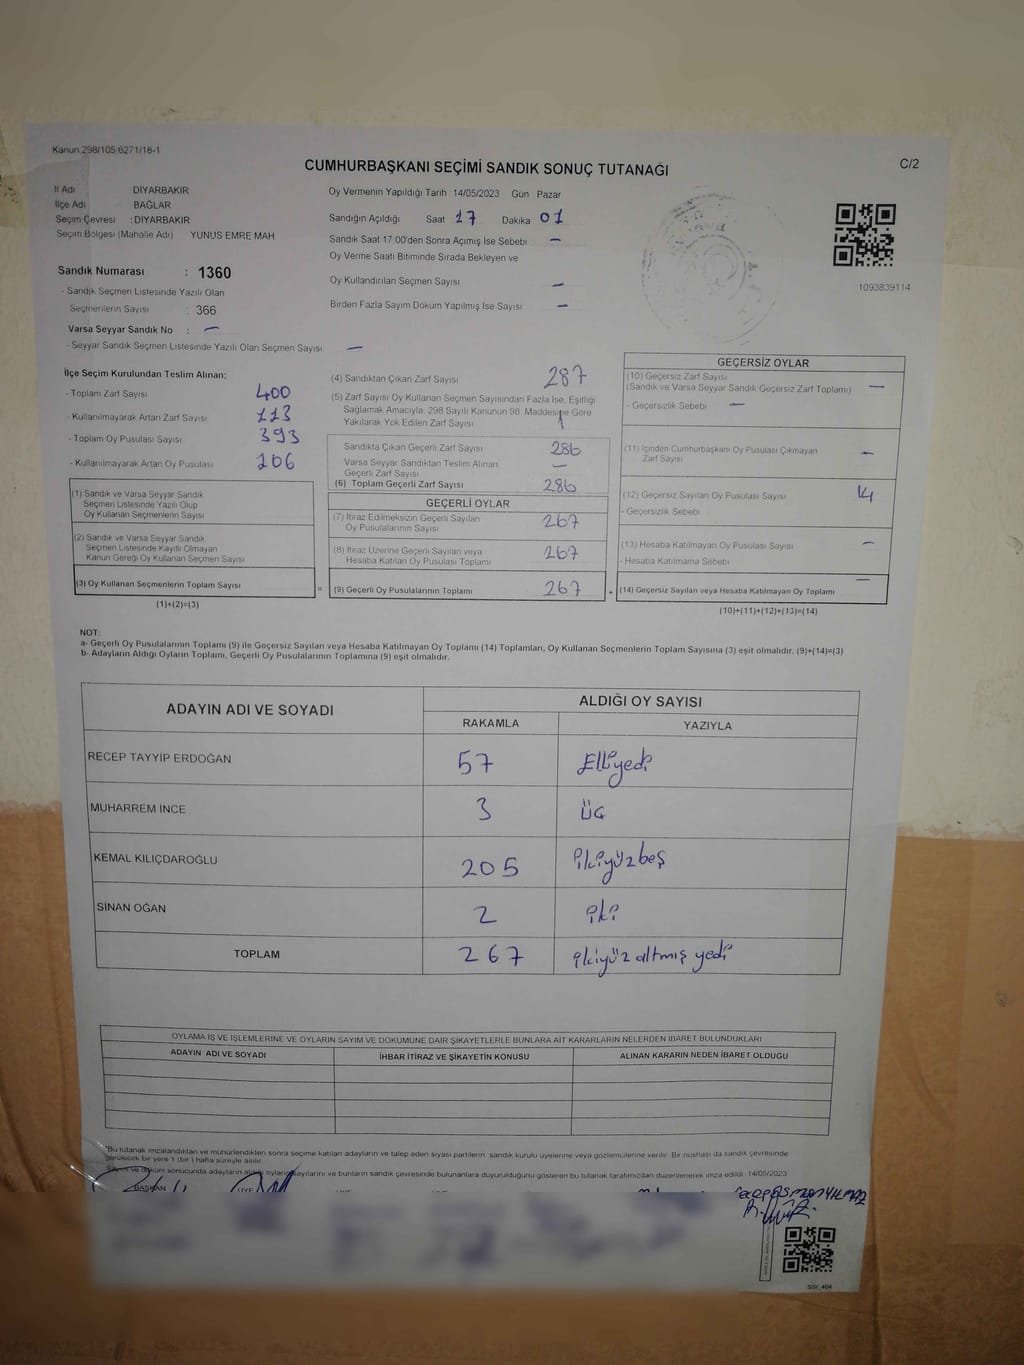 Kanun.298/105.6271/18-1
CUMHURBAŞKANI SEÇİMİ SANDIK SONUÇ TUTANAĞI
C/2
İl Adı DİYARBAKIR
İlçe Adı BAĞLAR
Seçim Çevresi : DİYARBAKIR
Seçim Bölgesi (Mahalle Adı) YUNUS EMRE MAH
Sandık Numarası : 1360
- Sandık Seçmen Listesinde Yazılı Olan
Seçmenlerin Sayısı : 366
Varsa Seyyar Sandık No : —
- Seyyar Sandık Seçmen Listesinde Yazılı Olan Seçmen Sayısı —
Oy Vermenin Yapıldığı Tarih 14/05/2023 Gün Pazar
Sandığın Açıldığı Saat 17 Dakika 01
Sandık Saat 17:00'den Sonra Açımış İse Sebebi —
Oy Verme Saati Bitiminde Sırada Bekleyen ve
Oy Kullandırılan Seçmen Sayısı —
Birden Fazla Sayım Döküm Yapılmış İse Sayısı —
1093839114
İlçe Seçim Kurulundan Teslim Alınan;
- Toplam Zarf Sayısı 400
- Kullanılmayarak Artan Zarf Sayısı 113
- Toplam Oy Pusulası Sayısı 393
- Kullanılmayarak Artan Oy Pusulası 106
(1) Sandık ve Varsa Seyyar Sandık
Seçmen Listesinde Yazılı Olup
Oy Kullanan Seçmenlerin Sayısı
(2) Sandık ve Varsa Seyyar Sandık
Seçmen Listesinde Kayıtlı Olmayan
Kanun Gereği Oy Kullanan Seçmen Sayısı
(3) Oy Kullanan Seçmenlerin Toplam Sayısı
(1)+(2)=(3)
(4) Sandıktan Çıkan Zarf Sayısı 287
(5) Zarf Sayısı Oy Kullanan Seçmen Sayısından Fazla İse, Eşitliği
Sağlamak Amacıyla. 298 Sayılı Kanunun 98. Maddesine Göre
Yakılarak Yok Edilen Zarf Sayısı 1
Sandıkta Çıkan Geçerli Zarf Sayısı 286
Varsa Seyyar Sandıktan Teslim Alınan
Geçerli Zarf Sayısı —
(6) Toplam Geçerli Zarf Sayısı 286
GEÇERLİ OYLAR
(7) İtiraz Edilmeksizin Geçerli Sayılan
Oy Pusulalarının Sayısı 267
(8) İtiraz Üzerine Geçerli Sayılan veya
Hesaba Katılan Oy Pusulası Toplamı 267
= (9) Geçerli Oy Pusulalarının Toplamı 267 +
GEÇERSİZ OYLAR
(10) Geçersiz Zarf Sayısı
(Sandık ve Varsa Seyyar Sandık Geçersiz Zarf Toplamı) —
- Geçersizlik Sebebi —
(11) İçinden Cumhurbaşkanı Oy Pusulası Çıkmayan
Zarf Sayısı —
(12) Geçersiz Sayılan Oy Pusulası Sayısı 14
- Geçersizlik Sebebi
(13) Hesaba Katılmayan Oy Pusulası Sayısı —
- Hesaba Katılmama Sebebi
(14) Geçersiz Sayılan veya Hesaba Katılmayan Oy Toplamı —
(10)+(11)+(12)+(13)=(14)
NOT:
a- Geçerli Oy Pusulalarının Toplamı (9) ile Geçersiz Sayılan veya Hesaba Katılmayan Oy Toplamı (14) Toplamları, Oy Kullanan Seçmenlerin Toplam Sayısına (3) eşit olmalıdır. (9)+(14)=(3)
b- Adayların Aldığı Oyların Toplamı, Geçerli Oy Pusulalarının Toplamına (9) eşit olmalıdır.
ADAYIN ADI VE SOYADI ALDIĞI OY SAYISI
RAKAMLA YAZIYLA
RECEP TAYYİP ERDOĞAN 57 Elliyedi
MUHARREM İNCE 3 üç
KEMAL KILIÇDAROĞLU 205 ikiyüzbeş
SİNAN OĞAN 2 iki
TOPLAM 267 ikiyüz altmış yedi
OYLAMA İŞ VE İŞLEMLERİNE VE OYLARIN SAYIM VE DÖKÜMÜNE DAİR ŞİKAYETLERLE BUNLARA AİT KARARLARIN NELERDEN İBARET BULUNDUKLARI
ADAYIN ADI VE SOYADI İHBAR İTİRAZ VE ŞİKAYETİN KONUSU ALINAN KARARIN NEDEN İBARET OLDUĞU
"Bu tutanak imzalandıktan ve mühürlendikten sonra seçime katılan adayların ve talep eden siyasi partilerin sandık kurulu üyelerine veya gözlemcilerine verilir. Bir nüshası da sandık çevresinde
görülecek bir yere 1 (bir) hafta süreyle asılır.
Sayım ve döküm sonucunda adayların aldığı oyların sayılarını ve bunların sandık çevresinde bulunanlara duyurulduğunu gösteren bu tutanak tarafımızdan düzenlenerek imza edildi. 14/05/2023
BAŞKAN ÜYE